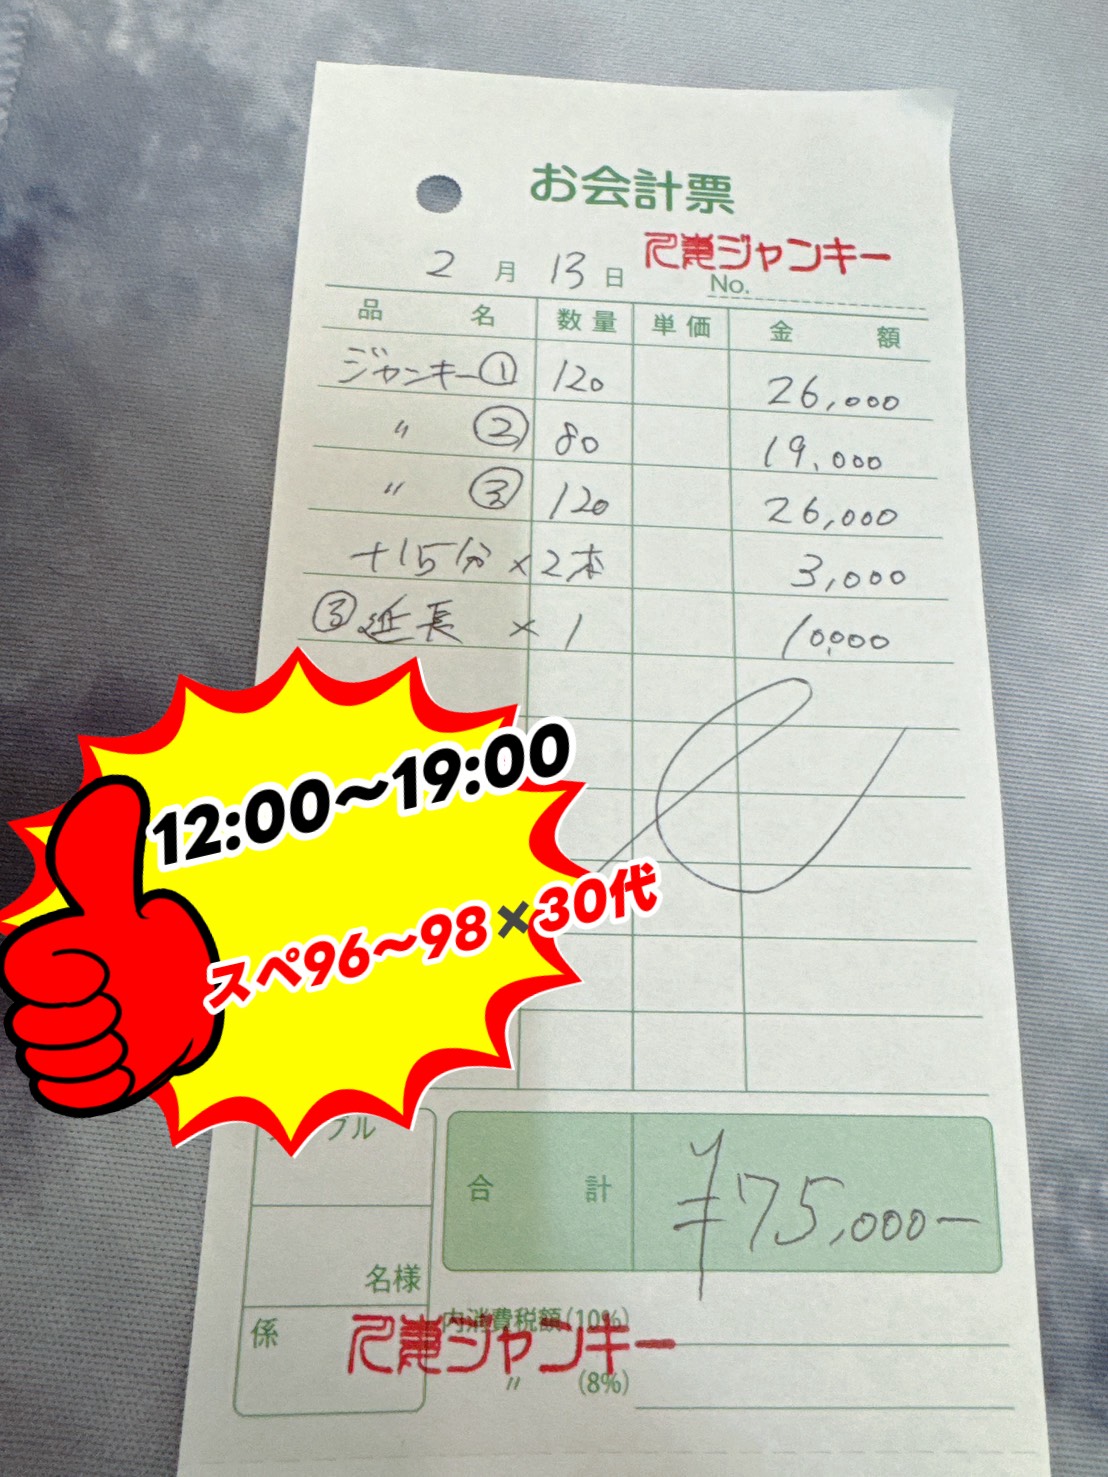 お会計票
人妻ジャンキー
2月13日 No.
品名 数量 単価 金額
ジャンキー① 120 26,000
〃 ② 80 19,000
〃 ③ 120 26,000
+15分×2本 3,000
③延長 ×1 10,000
12:00〜19:00
スペ96〜98×30代
ブル
合計 ¥75,000-
名様
係
内消費税額(10%)
人妻ジャンキー
〃 (8%)